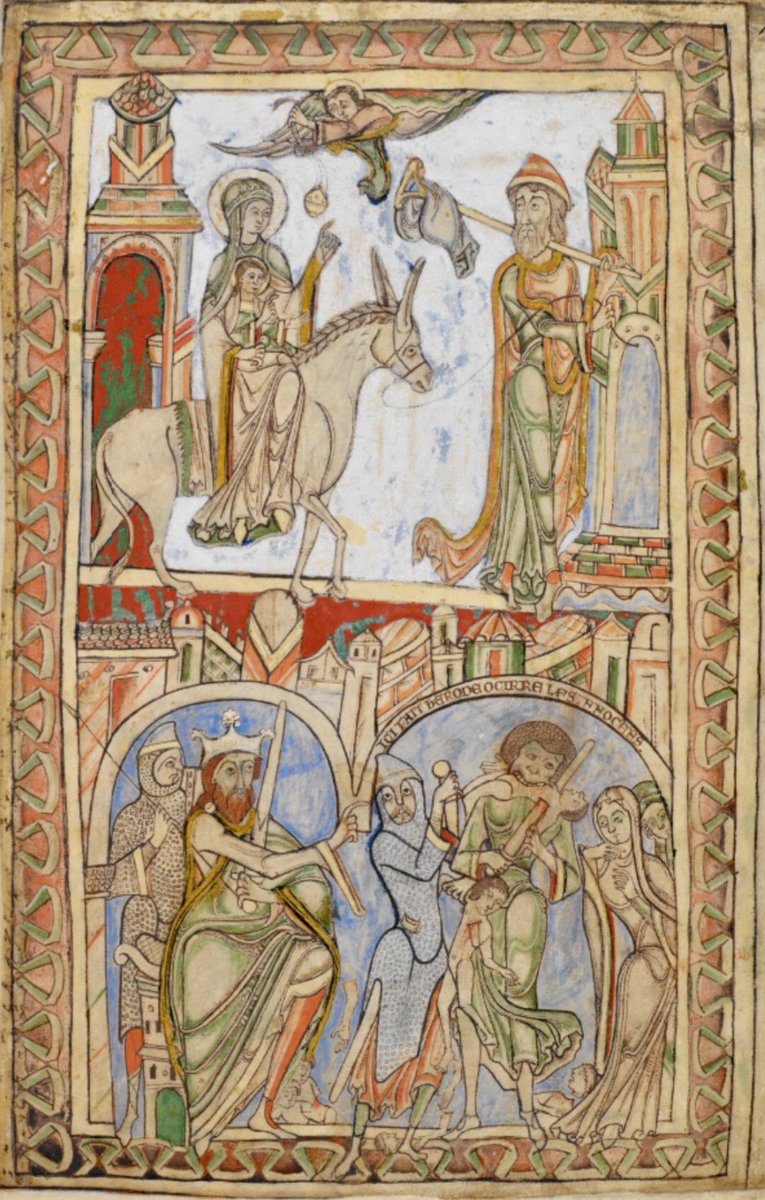 ICI FAIT HERODE OCIRRE LES INNOCENS